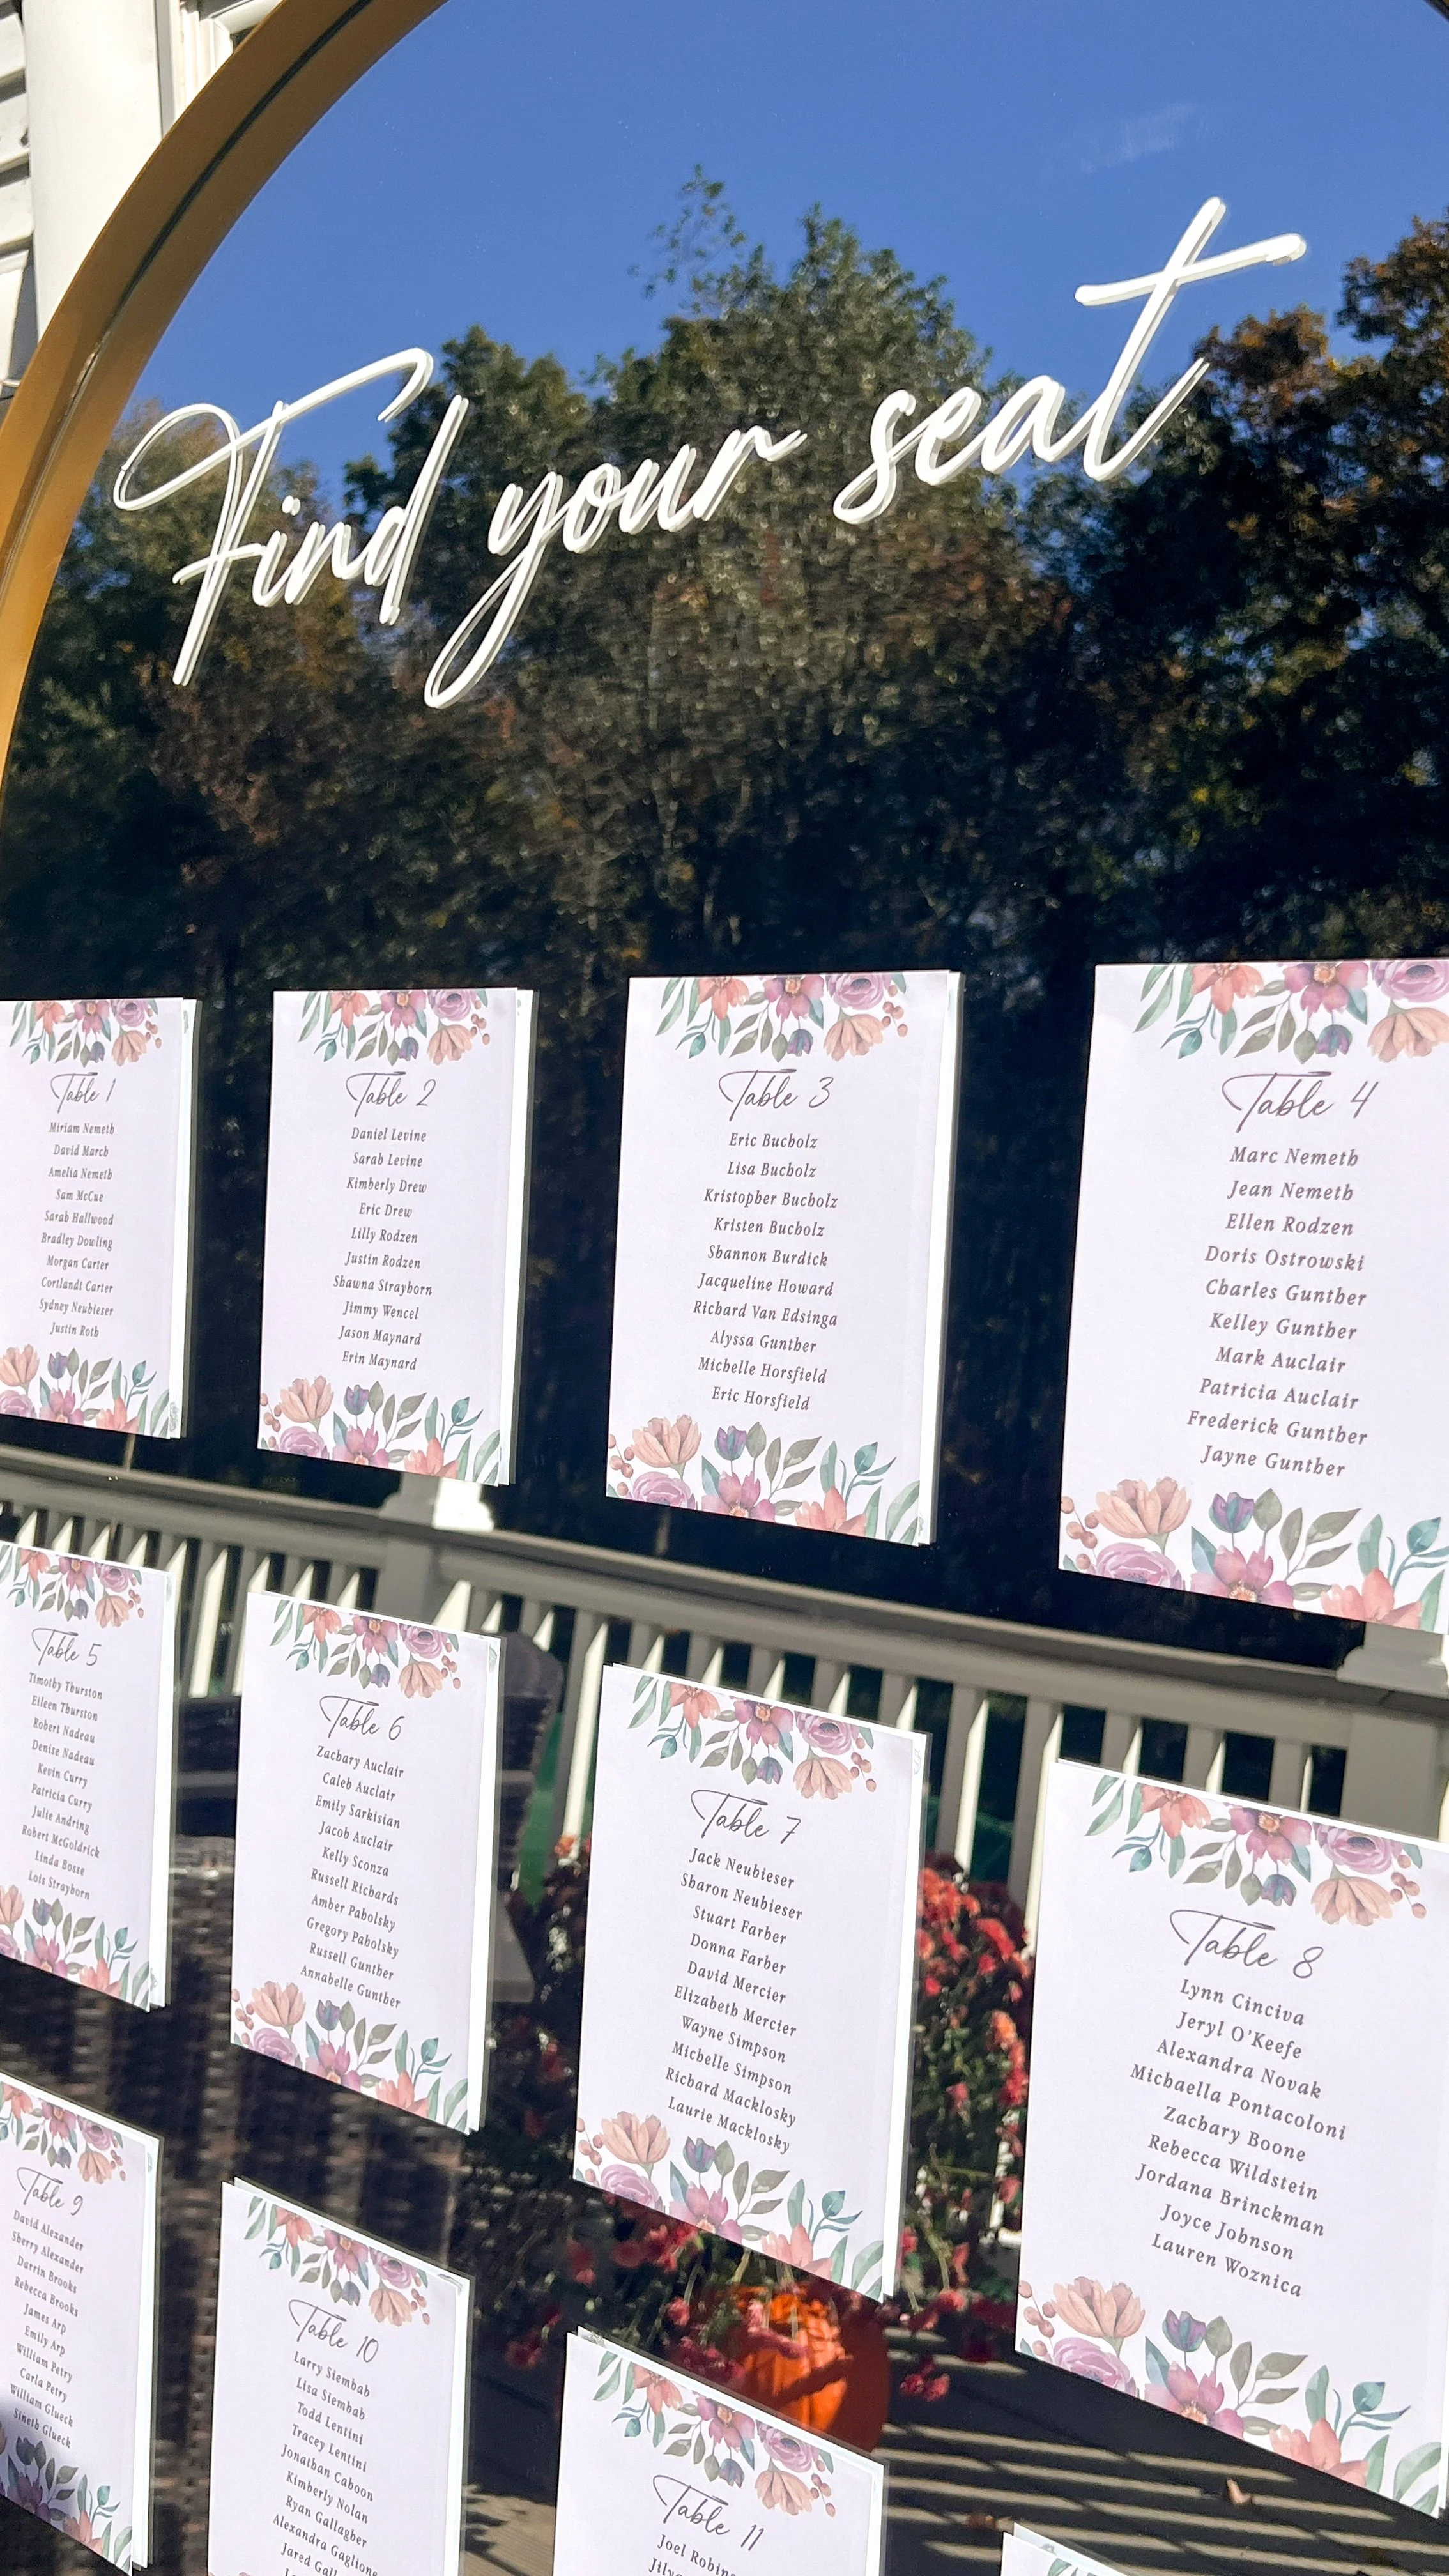 Find your seat
Table 1
Miriam Nemeth
David March
Amelia Nemeth
Sam McCue
Sarah Hallwood
Bradley Dowling
Morgan Carter
Cortlandt Carter
Sydney Neubieser
Justin Roth
Table 2
Daniel Levine
Sarah Levine
Kimberly Drew
Eric Drew
Lilly Rodzen
Justin Rodzen
Shawna Strayborn
Jimmy Wencel
Jason Maynard
Erin Maynard
Table 3
Eric Bucholz
Lisa Bucholz
Kristopher Bucholz
Kristen Bucholz
Shannon Burdick
Jacqueline Howard
Richard Van Edsinga
Alyssa Gunther
Michelle Horsfield
Eric Horsfield
Table 4
Marc Nemeth
Jean Nemeth
Ellen Rodzen
Doris Ostrowski
Charles Gunther
Kelley Gunther
Mark Auclair
Patricia Auclair
Frederick Gunther
Jayne Gunther
Table 5
Timothy Thurston
Eileen Thurston
Robert Nadeau
Denise Nadeau
Kevin Curry
Patricia Curry
Julie Andring
Robert McGoldrick
Linda Bosse
Lois Strayborn
Table 6
Zachary Auclair
Caleb Auclair
Emily Sarkisian
Jacob Auclair
Kelly Sconza
Russell Richards
Amber Pabolsky
Gregory Pabolsky
Russell Gunther
Annabelle Gunther
Table 7
Jack Neubieser
Sharon Neubieser
Stuart Farber
Donna Farber
David Mercier
Elizabeth Mercier
Wayne Simpson
Michelle Simpson
Richard Macklosky
Laurie Macklosky
Table 8
Lynn Cinciva
Jeryl O'Keefe
Alexandra Novak
Michaella Pontacoloni
Zachary Boone
Rebecca Wildstein
Jordana Brinckman
Joyce Johnson
Lauren Woznica
Table 9
David Alexander
Sherry Alexander
Darrin Brooks
Rebecca Brooks
James Arp
Emily Arp
William Petry
Carla Petry
William Glueck
Sineth Glueck
Table 10
Larry Siembab
Lisa Siembab
Todd Lentini
Tracey Lentini
Jonathan Caboon
Kimberly Nolan
Ryan Gallagher
Alexandra Gaglione
Jared
Table 11
Joel